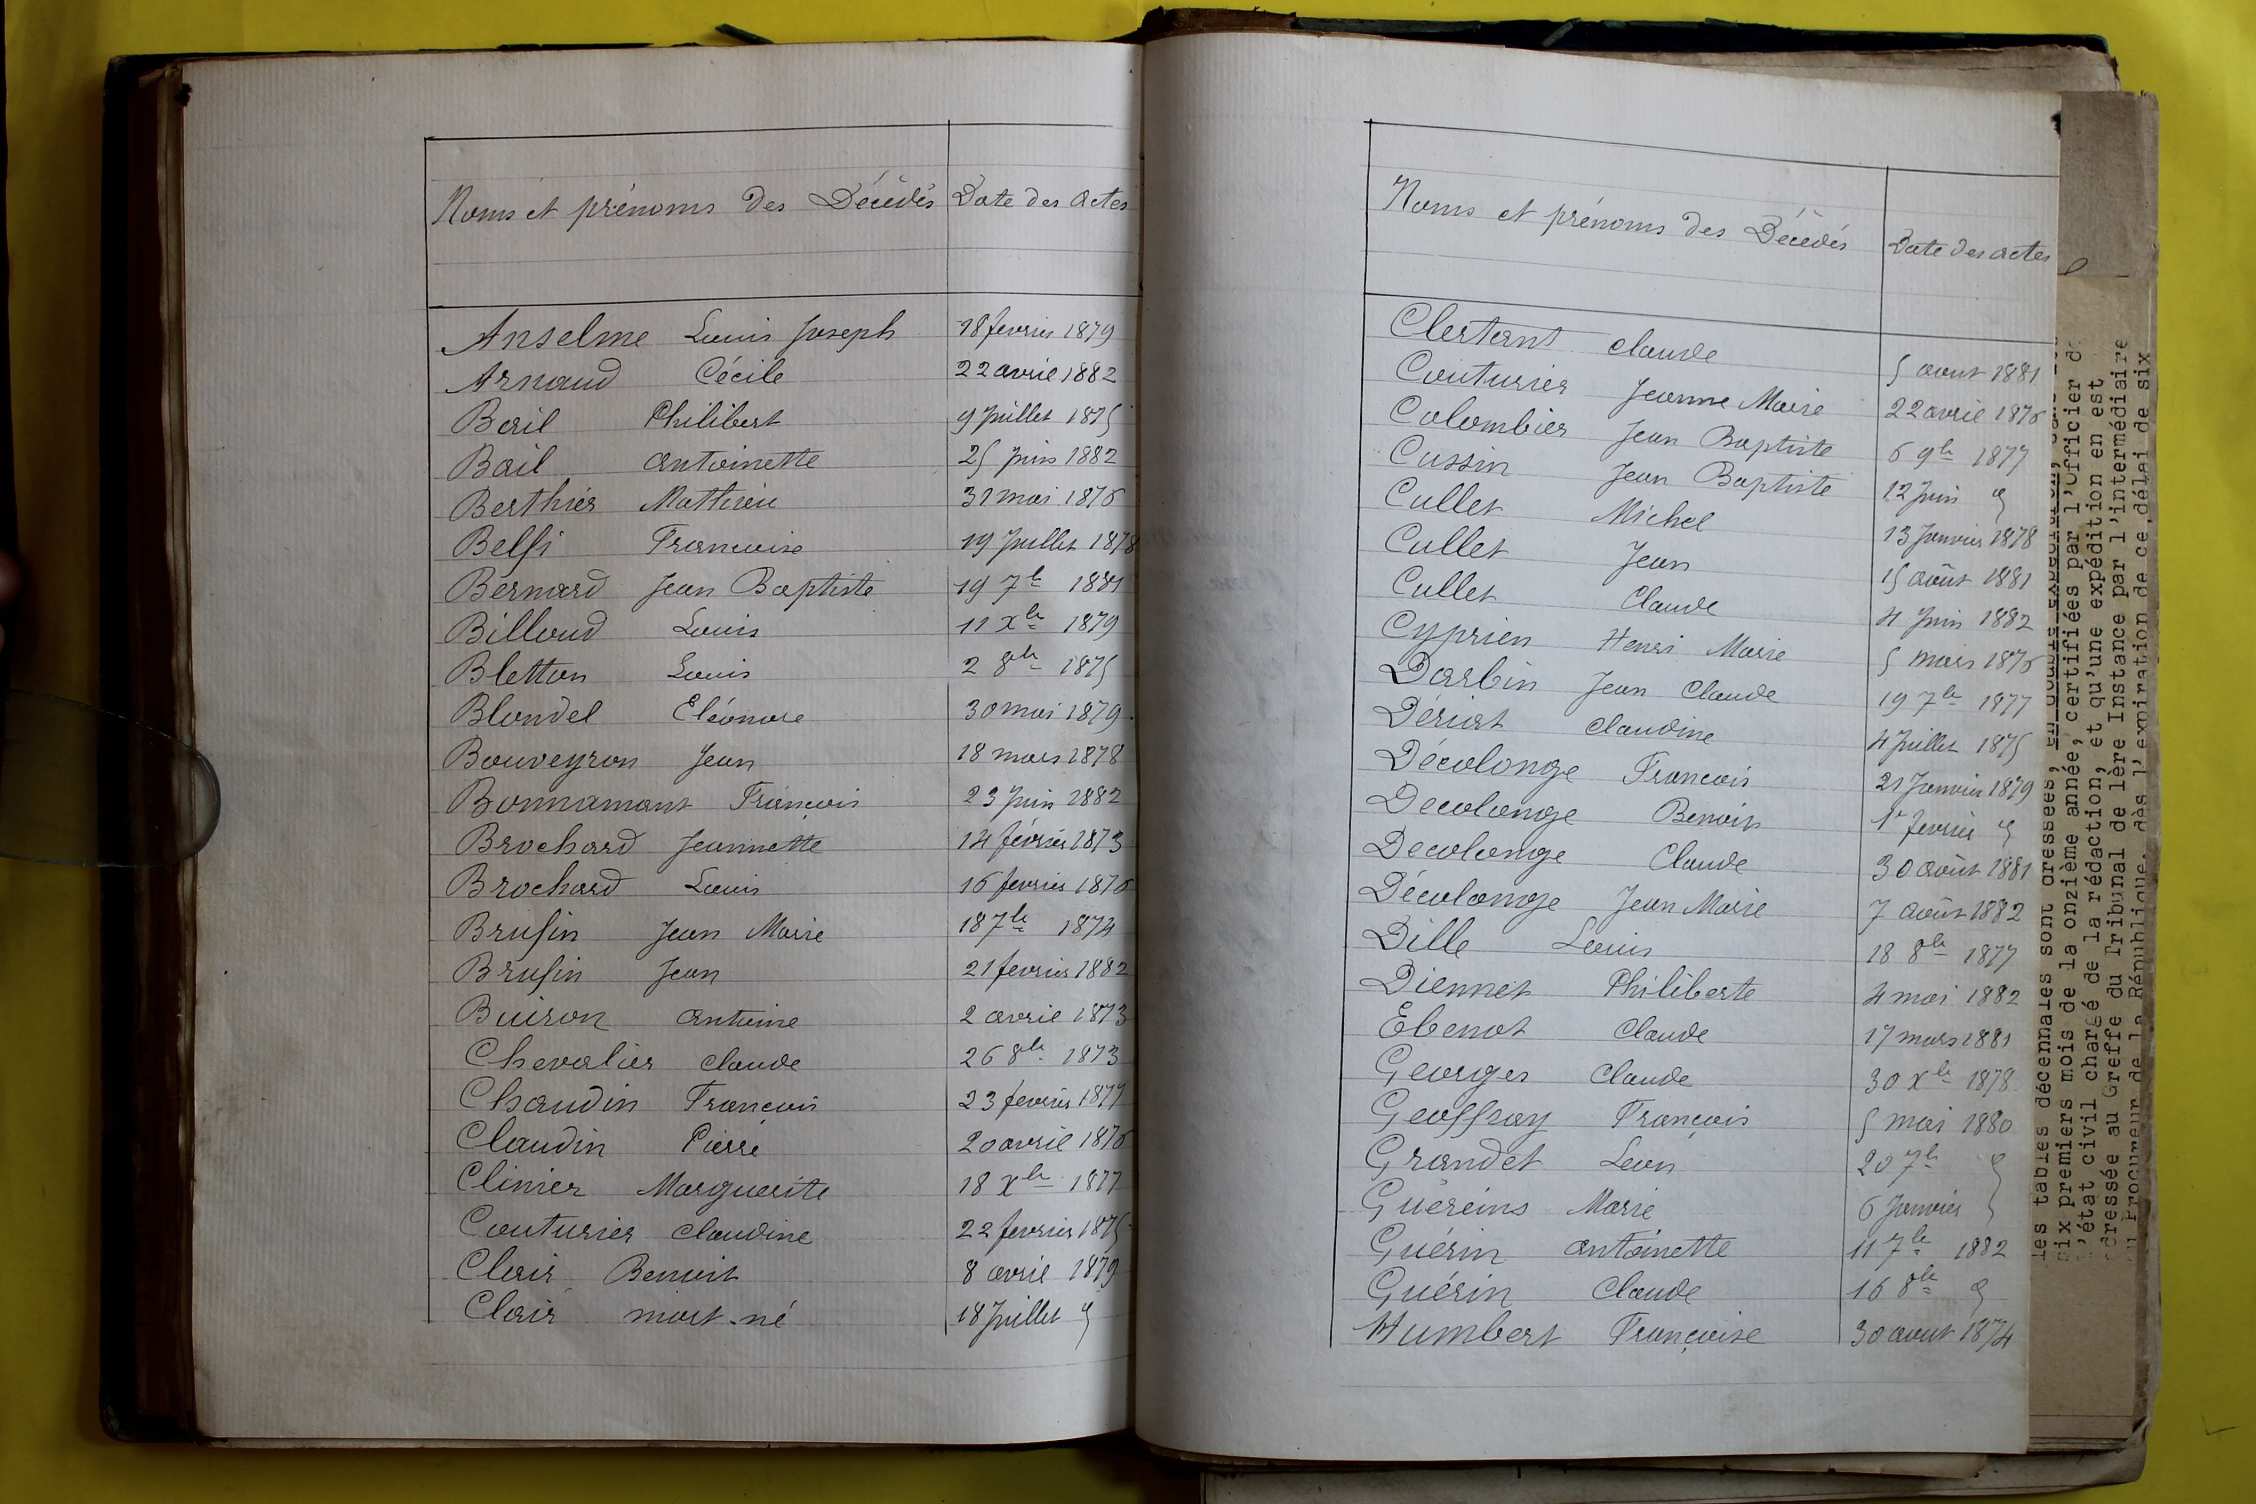 Noms et prénoms des Décédés Date des actes
Anselme Louis Joseph 18 fevrier 1879
Arnaud Cécile 22 avril 1882
Bail Philibert 9 Juillet 1875
Bail Antoinette 25 Juin 1882
Berthier Mathieu 31 mai 1876
Belfi Francoise 19 Juillet 1878
Bernard Jean Baptiste 19 7bre 1881
Billoud Louis 11 Xbre 1879
Bletton Louis 2 8bre 1875
Blondel Eléonore 30 mai 1879
Bouveyron Jean 18 mars 1878
Bonnamant François 23 Juin 1882
Brochard Jeannette 14 février 1873
Brochard Louis 16 fevrier 1876
Brusin Jean Marie 18 7bre 1874
Brusin Jean 21 fevrier 1882
Buiron antoine 2 avril 1873
Chevalier Claude 26 8bre 1873
Chaudin Francois 23 fevrier 1877
Claudin Pierre 20 avril 1876
Clinier Marguerite 18 Xbre 1877
Couturier Claudine 22 fevrier 1875
Clair Benoit 8 avril 1879
Clair mort-né 18 Juillet "
Noms et prénoms des Décédés Date des actes
Clertant Claude 5 aout 1881
Couturier Jeanne Marie 22 avril 1876
Colombier Jean Baptiste 6 9bre 1877
Cussin Jean Baptiste 12 Juin "
Cullet Michel 13 Janvier 1878
Cullet Jean 15 août 1881
Cullet Claude 4 Juin 1882
Cyprien Henri Marie 5 mars 1876
Darbin Jean Claude 19 7bre 1877
Dériat Claudine 4 Juillet 1875
Décolonge Francois 21 Janvier 1879
Decolonge Benoit 1er fevrier "
Decolonge Claude 30 août 1881
Décolonge Jean Marie 7 août 1882
Dille Louis 18 8bre 1877
Diennet Philiberte 4 mai 1882
Ebenot Claude 17 mars 1881
Georges Claude 30 Xbre 1878
Geoffray François 5 mai 1880
Grandet Leon 20 7bre "
Guéreins Marie 6 Janvier "
Guérin Antoinette 11 7bre 1882
Guérin Claude 16 8bre "
Humbert Françoise 30 aout 1874
les tables décennales sont dressées,
six premiers mois de la onzième année, certifiées par l'Officier de
l'état civil chargé de la rédaction, et qu'une expédition en est
adressée au Greffe du Tribunal de 1ère Instance par l'intermédiaire
du Procureur de la République, dès l'expiration de ce délai de six